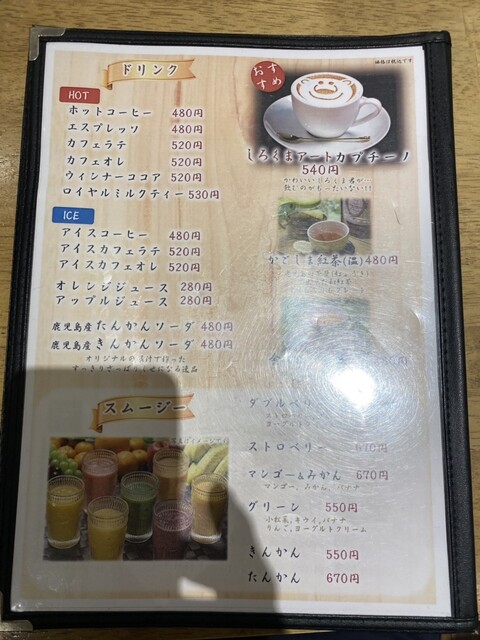 価格は税込です
ドリンク
HOT
ホットコーヒー 480円
エスプレッソ 480円
カフェラテ 520円
カフェオレ 520円
ウィンナーココア 520円
ロイヤルミルクティー 530円
ICE
アイスコーヒー 480円
アイスカフェラテ 520円
アイスカフェオレ 520円
オレンジジュース 280円
アップルジュース 280円
鹿児島産たんかんソーダ 480円
鹿児島産きんかんソーダ 480円
オリジナルの
すっきりさっぱり
になる逸品
おすすめ
しろくまアートカプチーノ
540円
かわいいしろくま君が…
飲むのがもったいない!!
かごしま紅茶(温) 480円
スムージー
ダブルベリー
ストロベリー 670円
マンゴー&みかん 670円
マンゴー、みかん、バナナ
グリーン 550円
小松菜、キウイ、バナナ
りんご、ヨーグルトクリーム
きんかん 550円
たんかん 670円